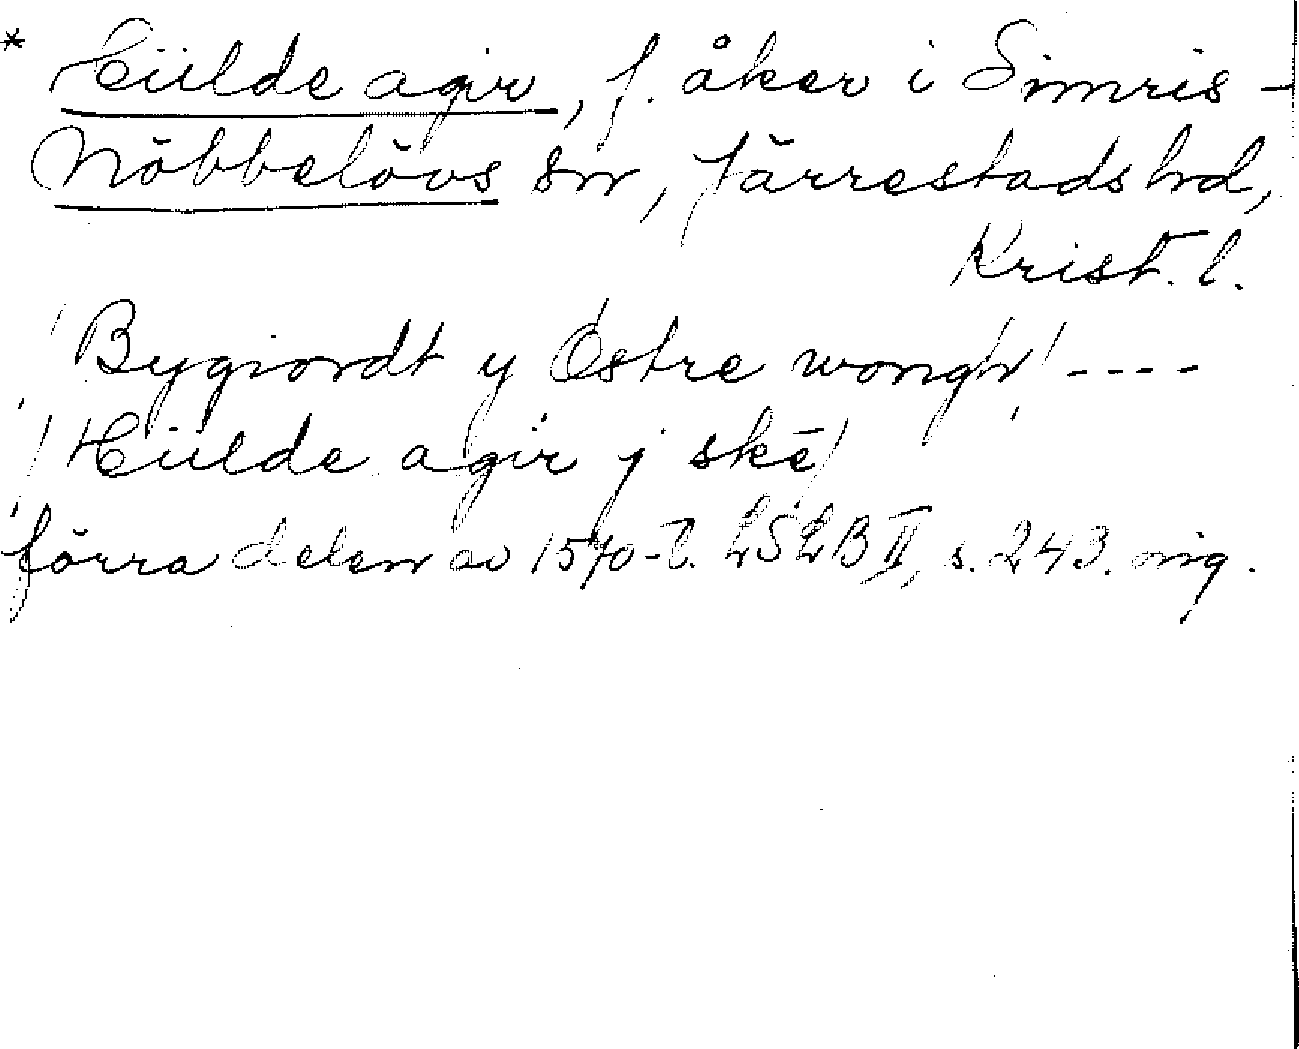 * Hüilde agir, f. åker i Simris-
Nöbbelövs sn, Järrestads hd,
Krist. l.
Bygiordt y Östre wongh ----
Hüilde agir j ske
förra delen av 1570-t. LSLB II, s. 243. mg.